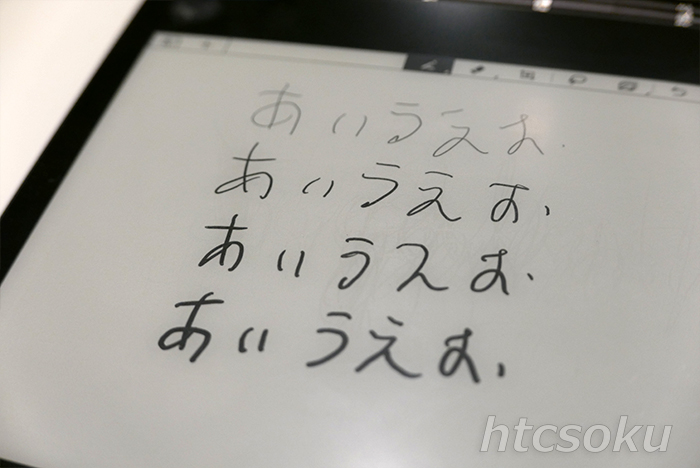 あいうえお
あいうえお
あいうえお
あいうえお
htcsoku